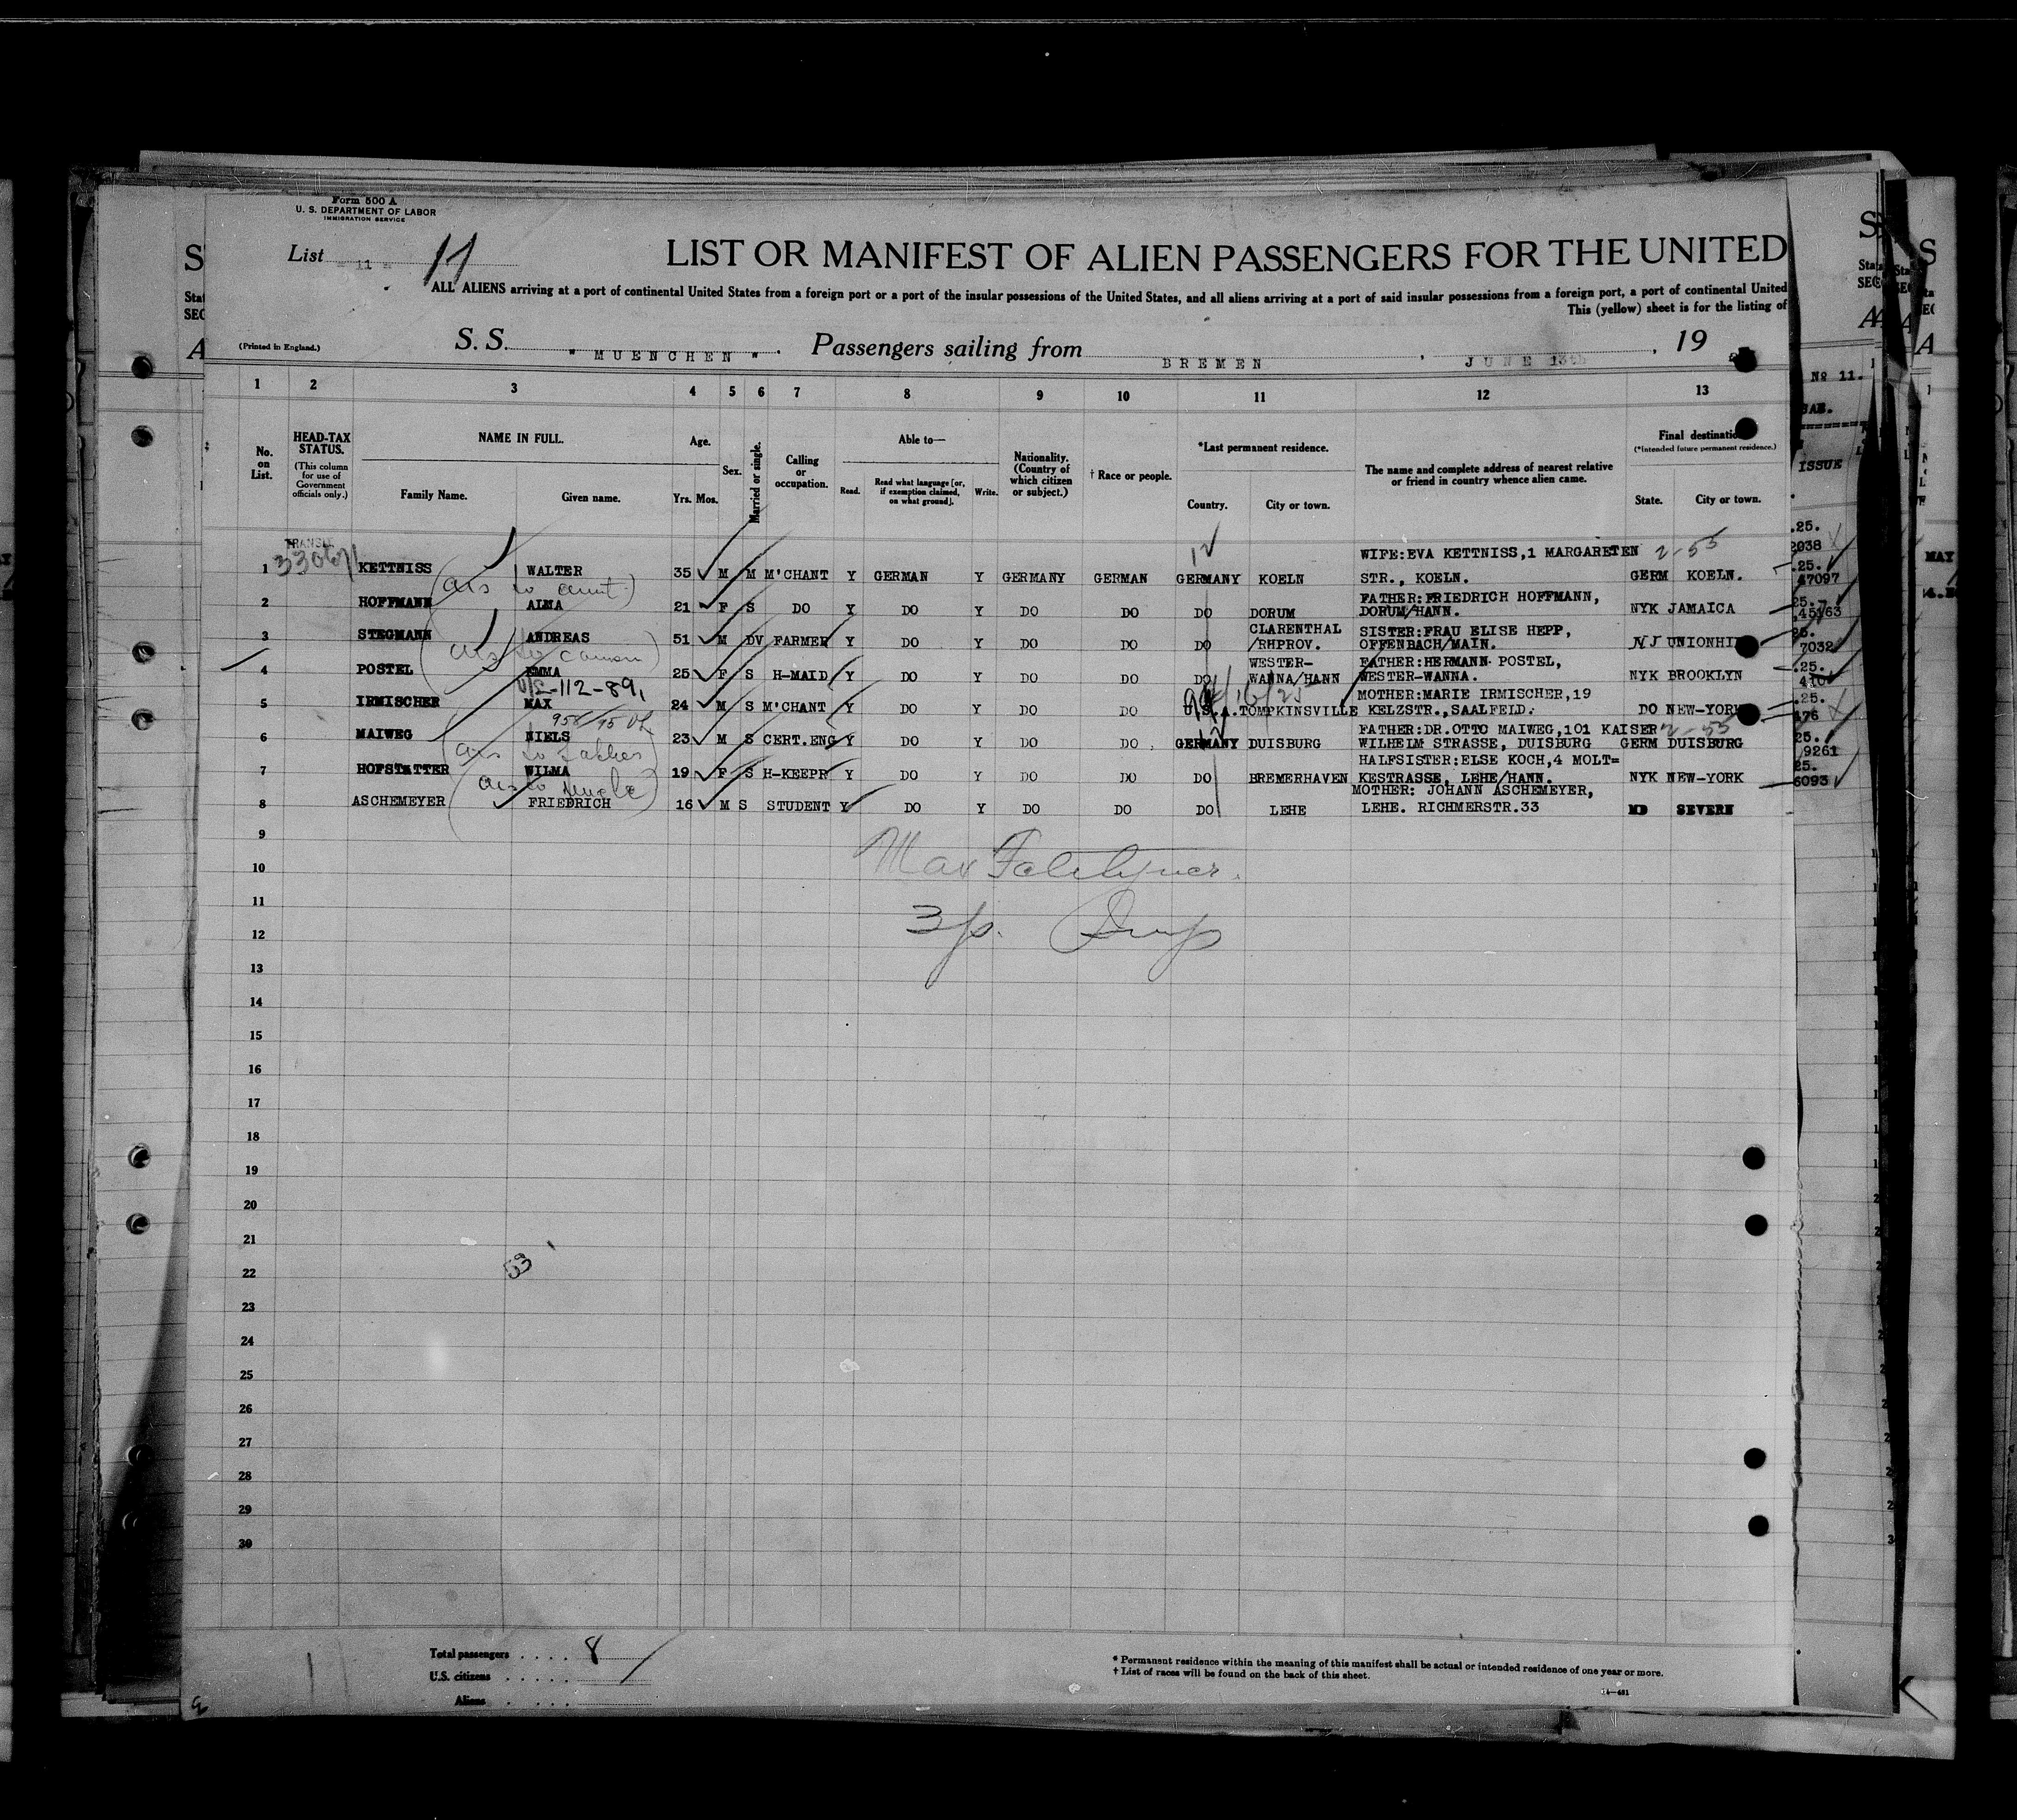 Form 500 A
U. S. DEPARTMENT OF LABOR
IMMIGRATION SERVICE
List - 11 - 11
LIST OR MANIFEST OF ALIEN PASSENGERS FOR THE UNITED
ALL ALIENS arriving at a port of continental United States from a foreign port or a port of the insular possessions of the United States, and all aliens arriving at a port of said insular possessions from a foreign port, a port of continental United
This (yellow) sheet is for the listing of
(Printed in England.)
S. S. " MUENCHEN " . Passengers sailing from BREMEN , JUNE 13th , 19
1 2 3 4 5 6 7 8 9 10 11 12 13
No. on List.
HEAD-TAX STATUS.
(This column for use of Government officials only.)
NAME IN FULL.
Family Name. Given name.
Age.
Yrs. Mos.
Sex.
Married or single.
Calling or occupation.
Able to—
Read. Read what language [or, if exemption claimed, on what ground]. Write.
Nationality. (Country of which citizen or subject.)
† Race or people.
*Last permanent residence.
Country. City or town.
The name and complete address of nearest relative or friend in country whence alien came.
Final destination
(*Intended future permanent residence.)
State. City or town.
No 11.
ISSUE
WIFE:EVA KETTNISS,1 MARGARETEN 2-55
1 KETTNISS WALTER 35 M M M'CHANT Y GERMAN Y GERMANY GERMAN GERMANY KOELN STR., KOELN. GERM KOELN. 47097
(as to aunt)
FATHER:FRIEDRICH HOFFMANN,
2 HOFFMANN ALMA 21 F S DO Y DO Y DO DO DO DORUM DORUM/HANN. NYK JAMAICA
CLARENTHAL SISTER:FRAU ELISE HEPP,
3 STEGMANN ANDREAS 51 M DV FARMER Y DO Y DO DO DO /RHPROV. OFFENBACH/MAIN. NJ UNIONHI 7032
WESTER- FATHER:HERMANN POSTEL,
4 POSTEL EMMA 25 F S H-MAID Y DO Y DO DO DO WANNA/HANN WESTER-WANNA. NYK BROOKLYN
112-89,
MOTHER:MARIE IRMISCHER,19
5 IRMISCHER MAX 24 M S M'CHANT Y DO Y DO DO U.S.A. TOMPKINSVILLE KELZSTR.,SAALFELD. DO NEW-YORK 176
FATHER:DR.OTTO MAIWEG,101 KAISER 2-55
6 MAIWEG NIELS 23 M S CERT.ENG Y DO Y DO DO GERMANY DUISBURG WILHELM STRASSE, DUISBURG GERM DUISBURG 9261
(as to father
HALFSISTER:ELSE KOCH,4 MOLT=
7 HOFSTATTER WILMA 19 F S H-KEEPR Y DO Y DO DO DO BREMERHAVEN KESTRASSE, LEHE/HANN. NYK NEW-YORK 6093
as to uncle
MOTHER: JOHANN ASCHEMEYER,
8 ASCHEMEYER FRIEDRICH 16 M S STUDENT Y DO Y DO DO DO LEHE LEHE. RICHMERSTR.33 MD SEVERN
9
10
11
12
13
14
15
16
17
18
19
20
21
22
23
24
25
26
27
28
29
30
53
Total passengers . . . . 8
U.S. citizens . . . . .
Aliens . . . .
* Permanent residence within the meaning of this manifest shall be actual or intended residence of one year or more.
† List of races will be found on the back of this sheet.